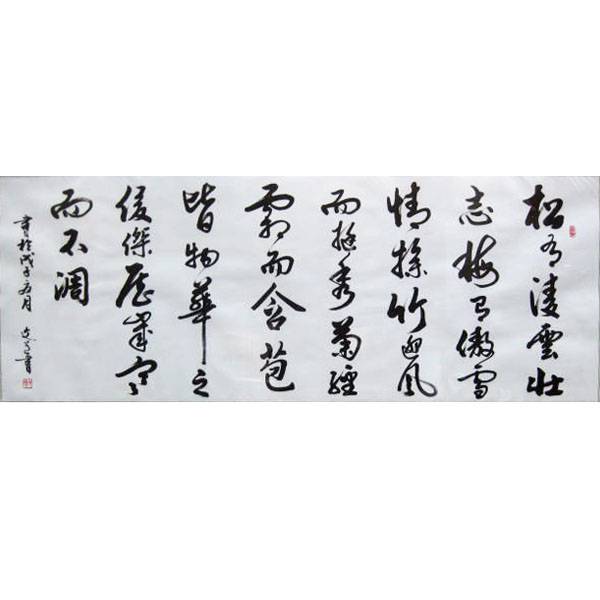 松有凌雲壯
志梅有傲雪
情操竹迎風
而挺秀菊經
霜而含苞
皆物華之
俊傑歷歲寒
而不凋
書於戊子五月